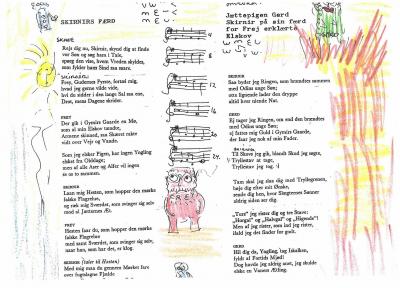 SKIRNIRS FÆRD
SKADE
Rejs dig nu, Skirnir, skynd dig at finde
vor Søn og søg ham i Tale,
spørg den vise, hvem Vreden skyldes,
som fylder ham Sind saa svare.
skirnir
Frej, Gudernes Fyrste, fortæl mig,
hvad jeg gerne vilde vide,
hvi du sidder i den lange Sal ene,
Drot, mens Dagene skrider.
FREY
Der gik i Gymirs Gaarde en Mø,
som af min Elskov tændtes,
Armene skinned, saa Skæret naaede
vidt over Vejr og Vande.
Som jeg elsker Pigen, har ingen Yngling
elsket fra Olddage;
men af alle Aser og Alfer vil ingen
os se to sammen.
SKIRNIR
Laan mig Hesten, som hopper den mørke
fakkel Flagrelse,
og ræk mig Sværdet, som svinger sig selv
mod al Jætternes Æt.
FREY
Hesten har du, som hopper den mørke
fakkel Flagrelse
med samt Sværdet, som svinger sig selv,
naar han, som har det, er klog.
SKIRNIR (taler til Hesten)
Med mig maa du gennem Mørket fare
over fugtslagne Fjelde
4
8
12
16
20
24
FREJ
Jættepigen Gerd
Skirnir på sin færd
for Frej erklærte
Elskov
SKIRNIR
Saa byder jeg Ringen, som brændtes sammen
med Odins unge Søn;
otte lignende lader den dryppe
altid hver niende Nat.
GERD
Ej tager jeg Ringen, om end den brændtes
med Odins unge Søn;
ej fattes mig Guld i Gymirs Gaarde,
der faar jeg nok af min Fader.
skirnir
Til Slave jeg gik, blandt Skud jeg søgte,
Tryllestav at tage,
Tryllestav jeg tog.
Tam skal jeg dig med Tryllegrenen,
bøje dig efter mit Ønske,
sende dig hen, hvor Slægternes Sønner
aldrig siden ser dig.
„Turs" jeg rister dig og tre Stave:
„Horgal" og „Halvgal" og „Higesdø"!
Men af jeg rister, som ind jeg rister,
ifald jeg det finder for godt.
GERD
Hil dig da, Yngling, tag Iskalken,
fyldt af Fortids Mjød!
Dog havde jeg aldrig anet, jeg skulde
elske en Vanens Ætling.